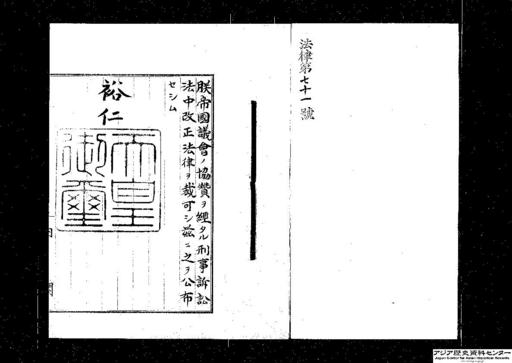 法律第七十一號
朕帝國議會ノ協贊ヲ經タル刑事訴訟
法中改正法律ヲ裁可シ茲ニ之ヲ公布
セシム
裕仁
天皇
御璽
アジア歴史資料センター
Japan Center for Asian Historical Records